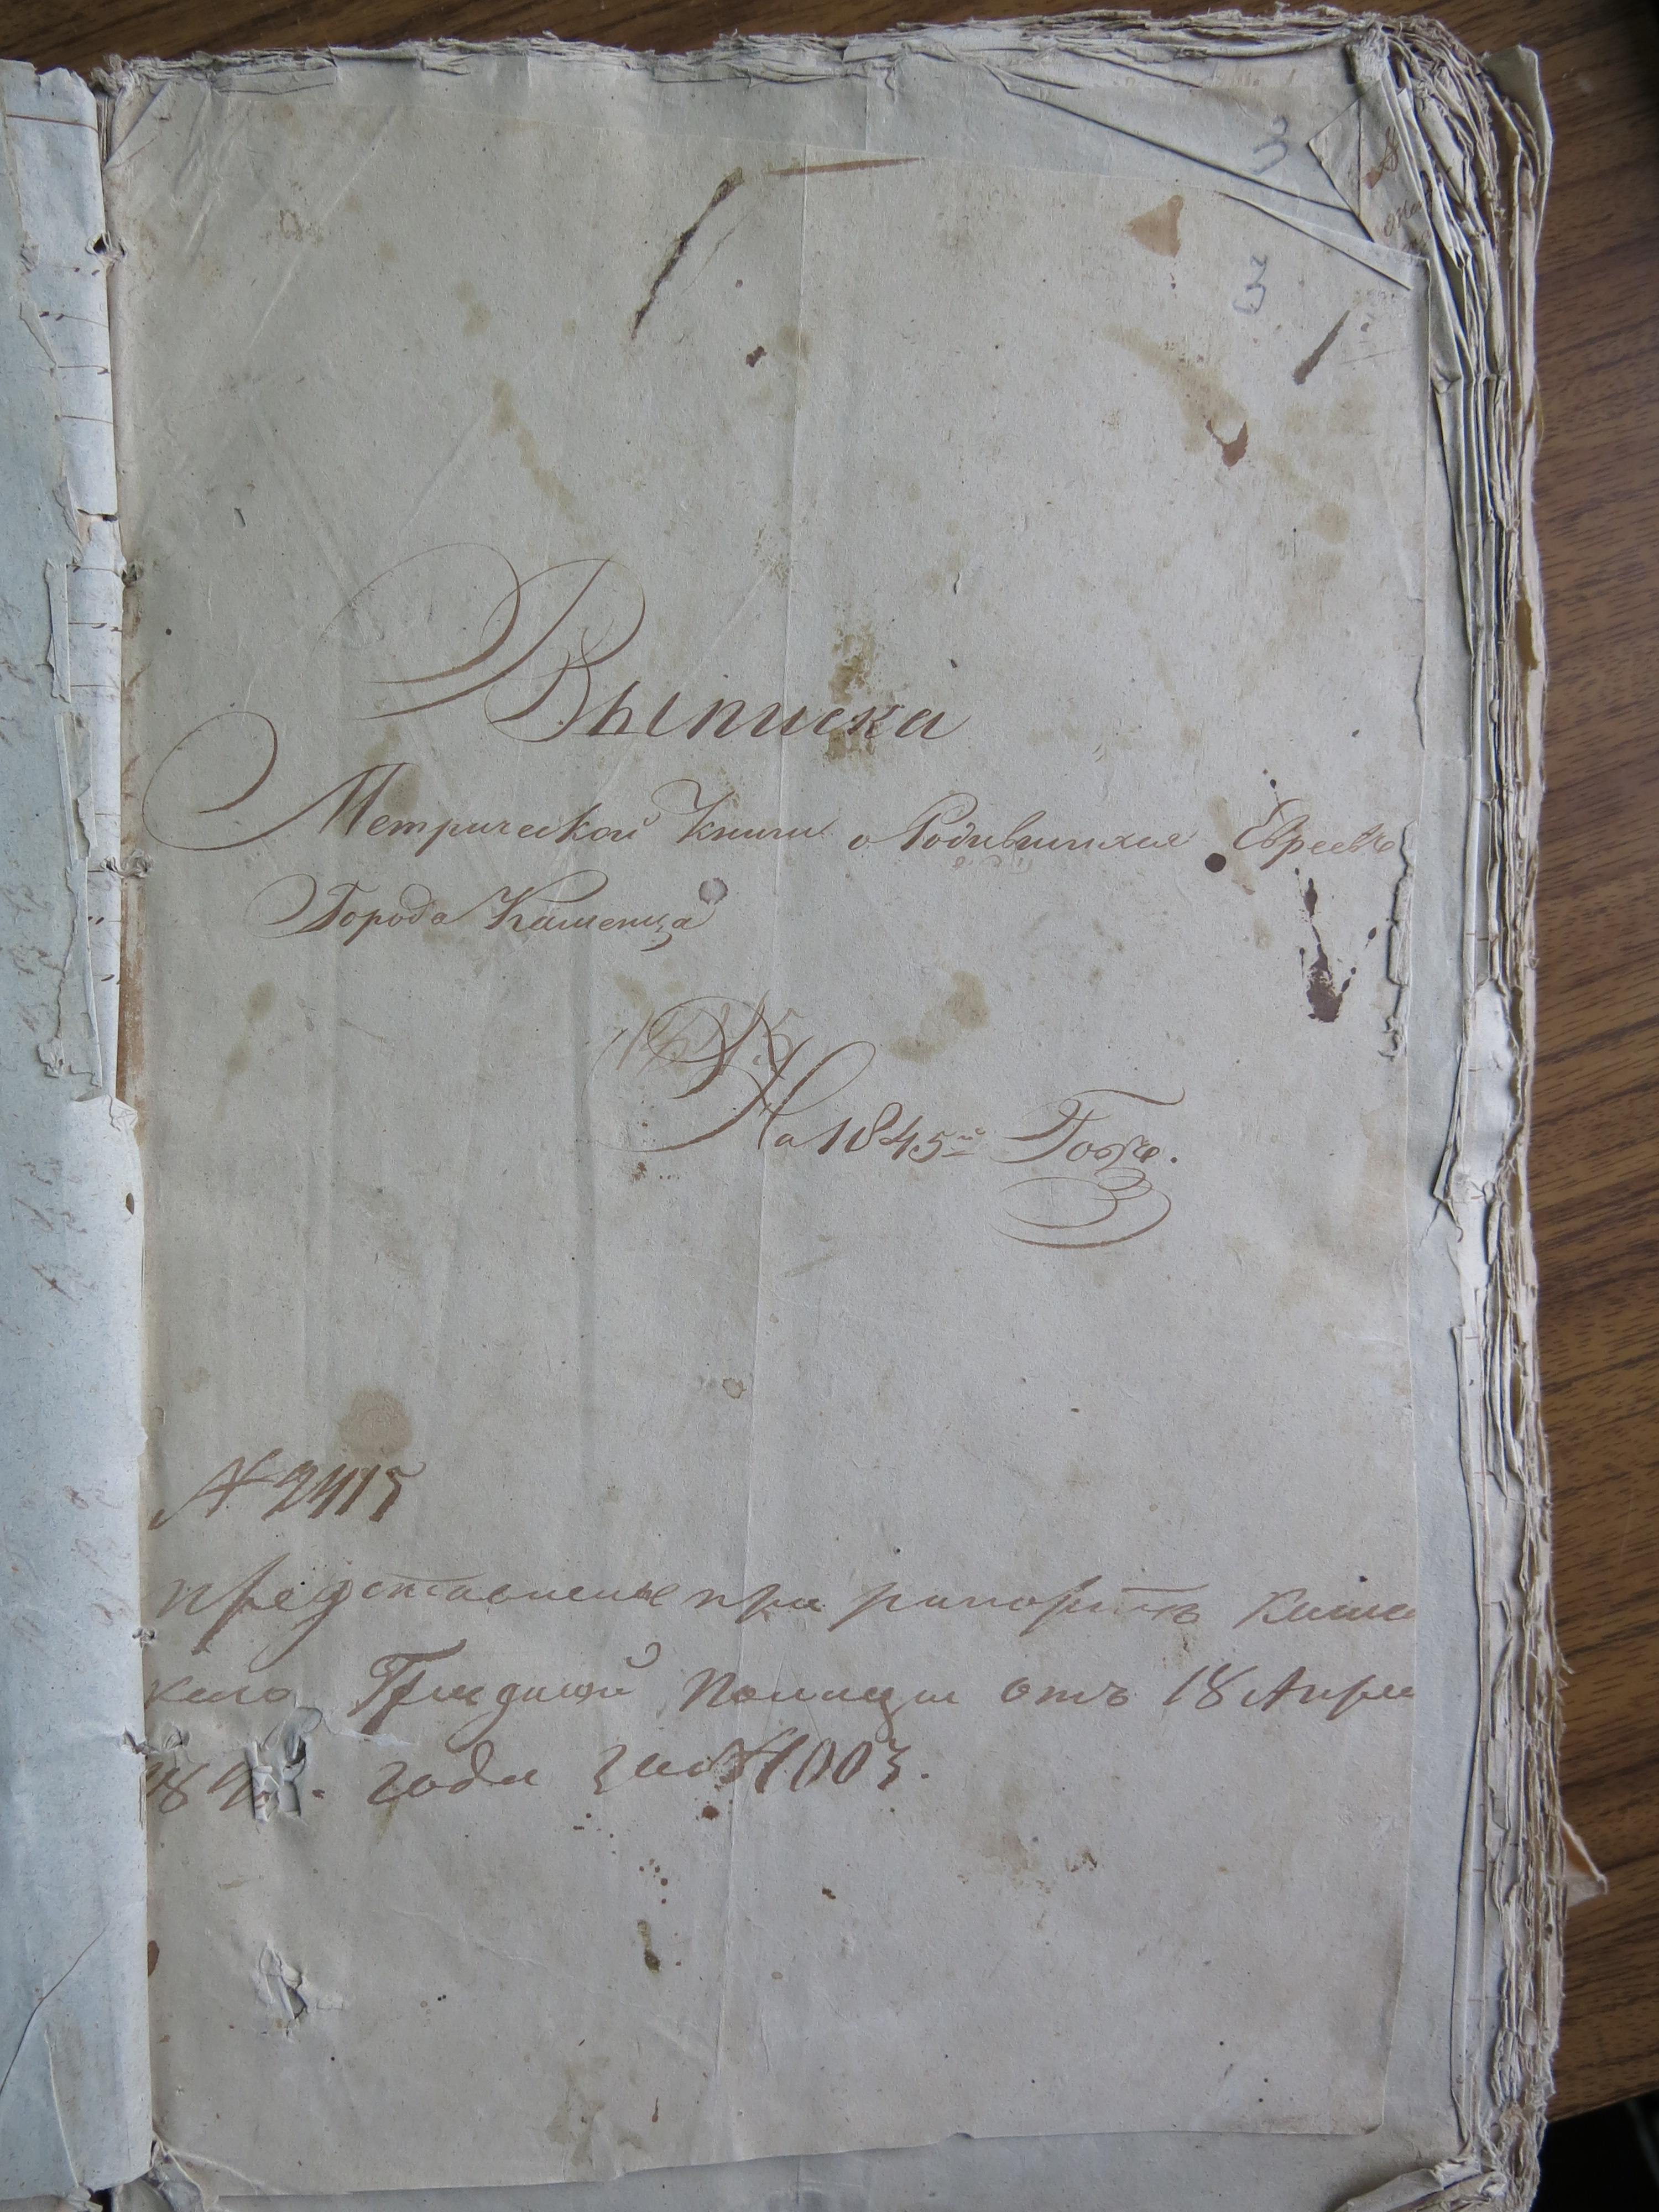 3
3
Выписка
Метрической Книги о Родившихся Евреевъ
Города Каменца
На 1845й Годъ.
№ 2415
представлены при рапортѣ Камен
кого Градской Полиции отъ 18 Апре
184 года за № 1003.